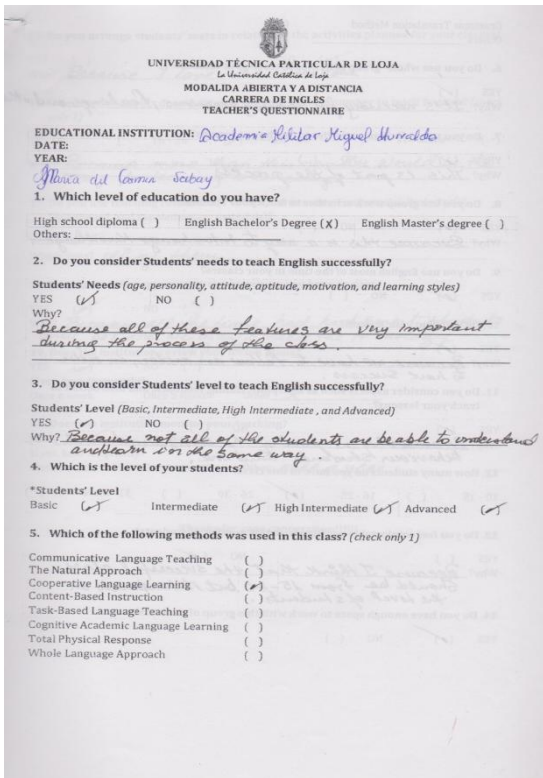 UNIVERSIDAD TÉCNICA PARTICULAR DE LOJA
La Universidad Católica de Loja
MODALIDAD ABIERTA Y A DISTANCIA
CARRERA DE INGLES
TEACHER'S QUESTIONNAIRE
EDUCATIONAL INSTITUTION: Academia Militar Miguel Iturralde
DATE:
YEAR:
María del Carmen
1. Which level of education do you have?
High school diploma ( ) English Bachelor's Degree (X) English Master's degree ( )
Others:
2. Do you consider Students' needs to teach English successfully?
Students' Needs (age, personality, attitude, aptitude, motivation, and learning styles)
YES (✓) NO ( )
Why?
Because all of these features are very important
during the process of the class.
3. Do you consider Students' level to teach English successfully?
Students' Level (Basic, Intermediate, High Intermediate , and Advanced)
YES (✓) NO ( )
Why? Because not all of the students are be able to understand
and learn in the same way.
4. Which is the level of your students?
*Students' Level
Basic (✓) Intermediate (✓) High Intermediate (✓) Advanced (✓)
5. Which of the following methods was used in this class? (check only 1)
Communicative Language Teaching ( )
The Natural Approach ( )
Cooperative Language Learning (✓)
Content-Based Instruction ( )
Task-Based Language Teaching ( )
Cognitive Academic Language Learning ( )
Total Physical Response ( )
Whole Language Approach ( )